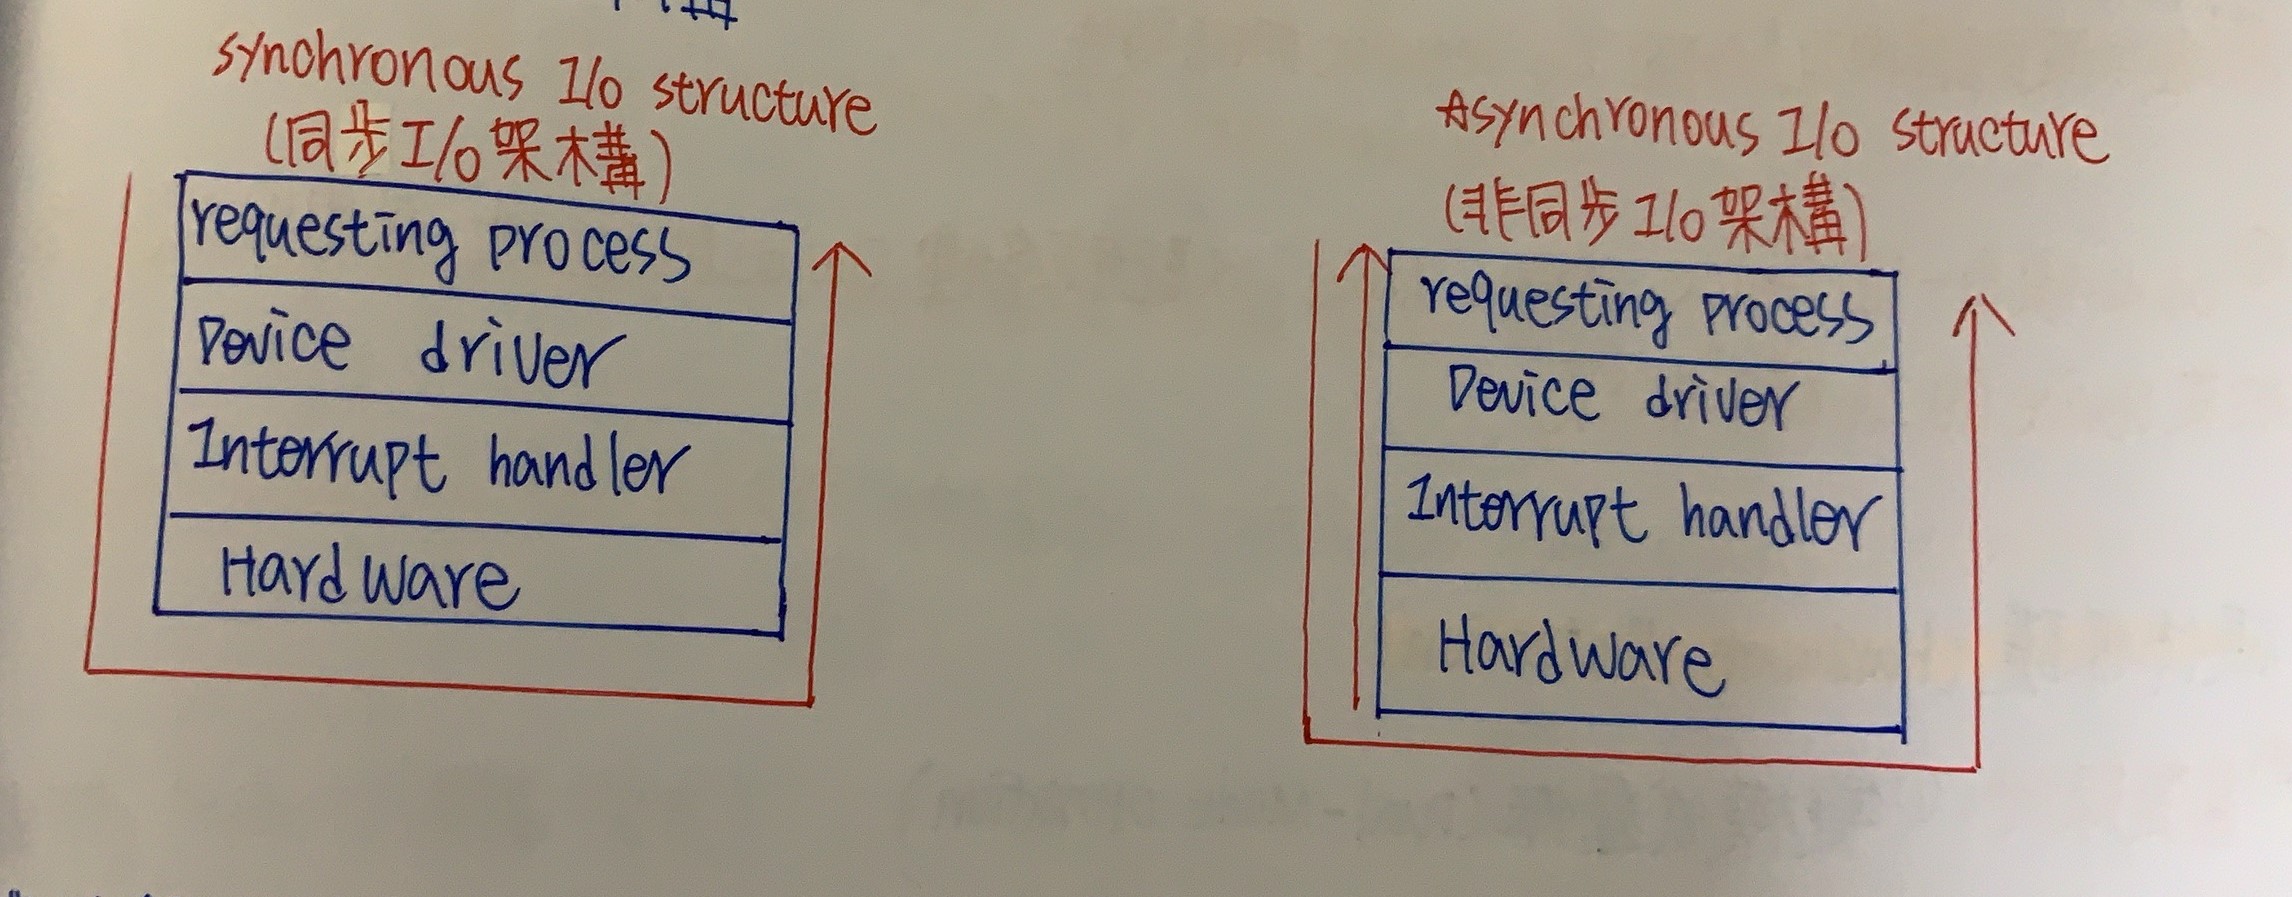 synchronous I/O structure
(同步I/O架構)
requesting process
Device driver
Interrupt handler
Hardware
Asynchronous I/O structure
(非同步I/O架構)
requesting process
Device driver
Interrupt handler
Hardware